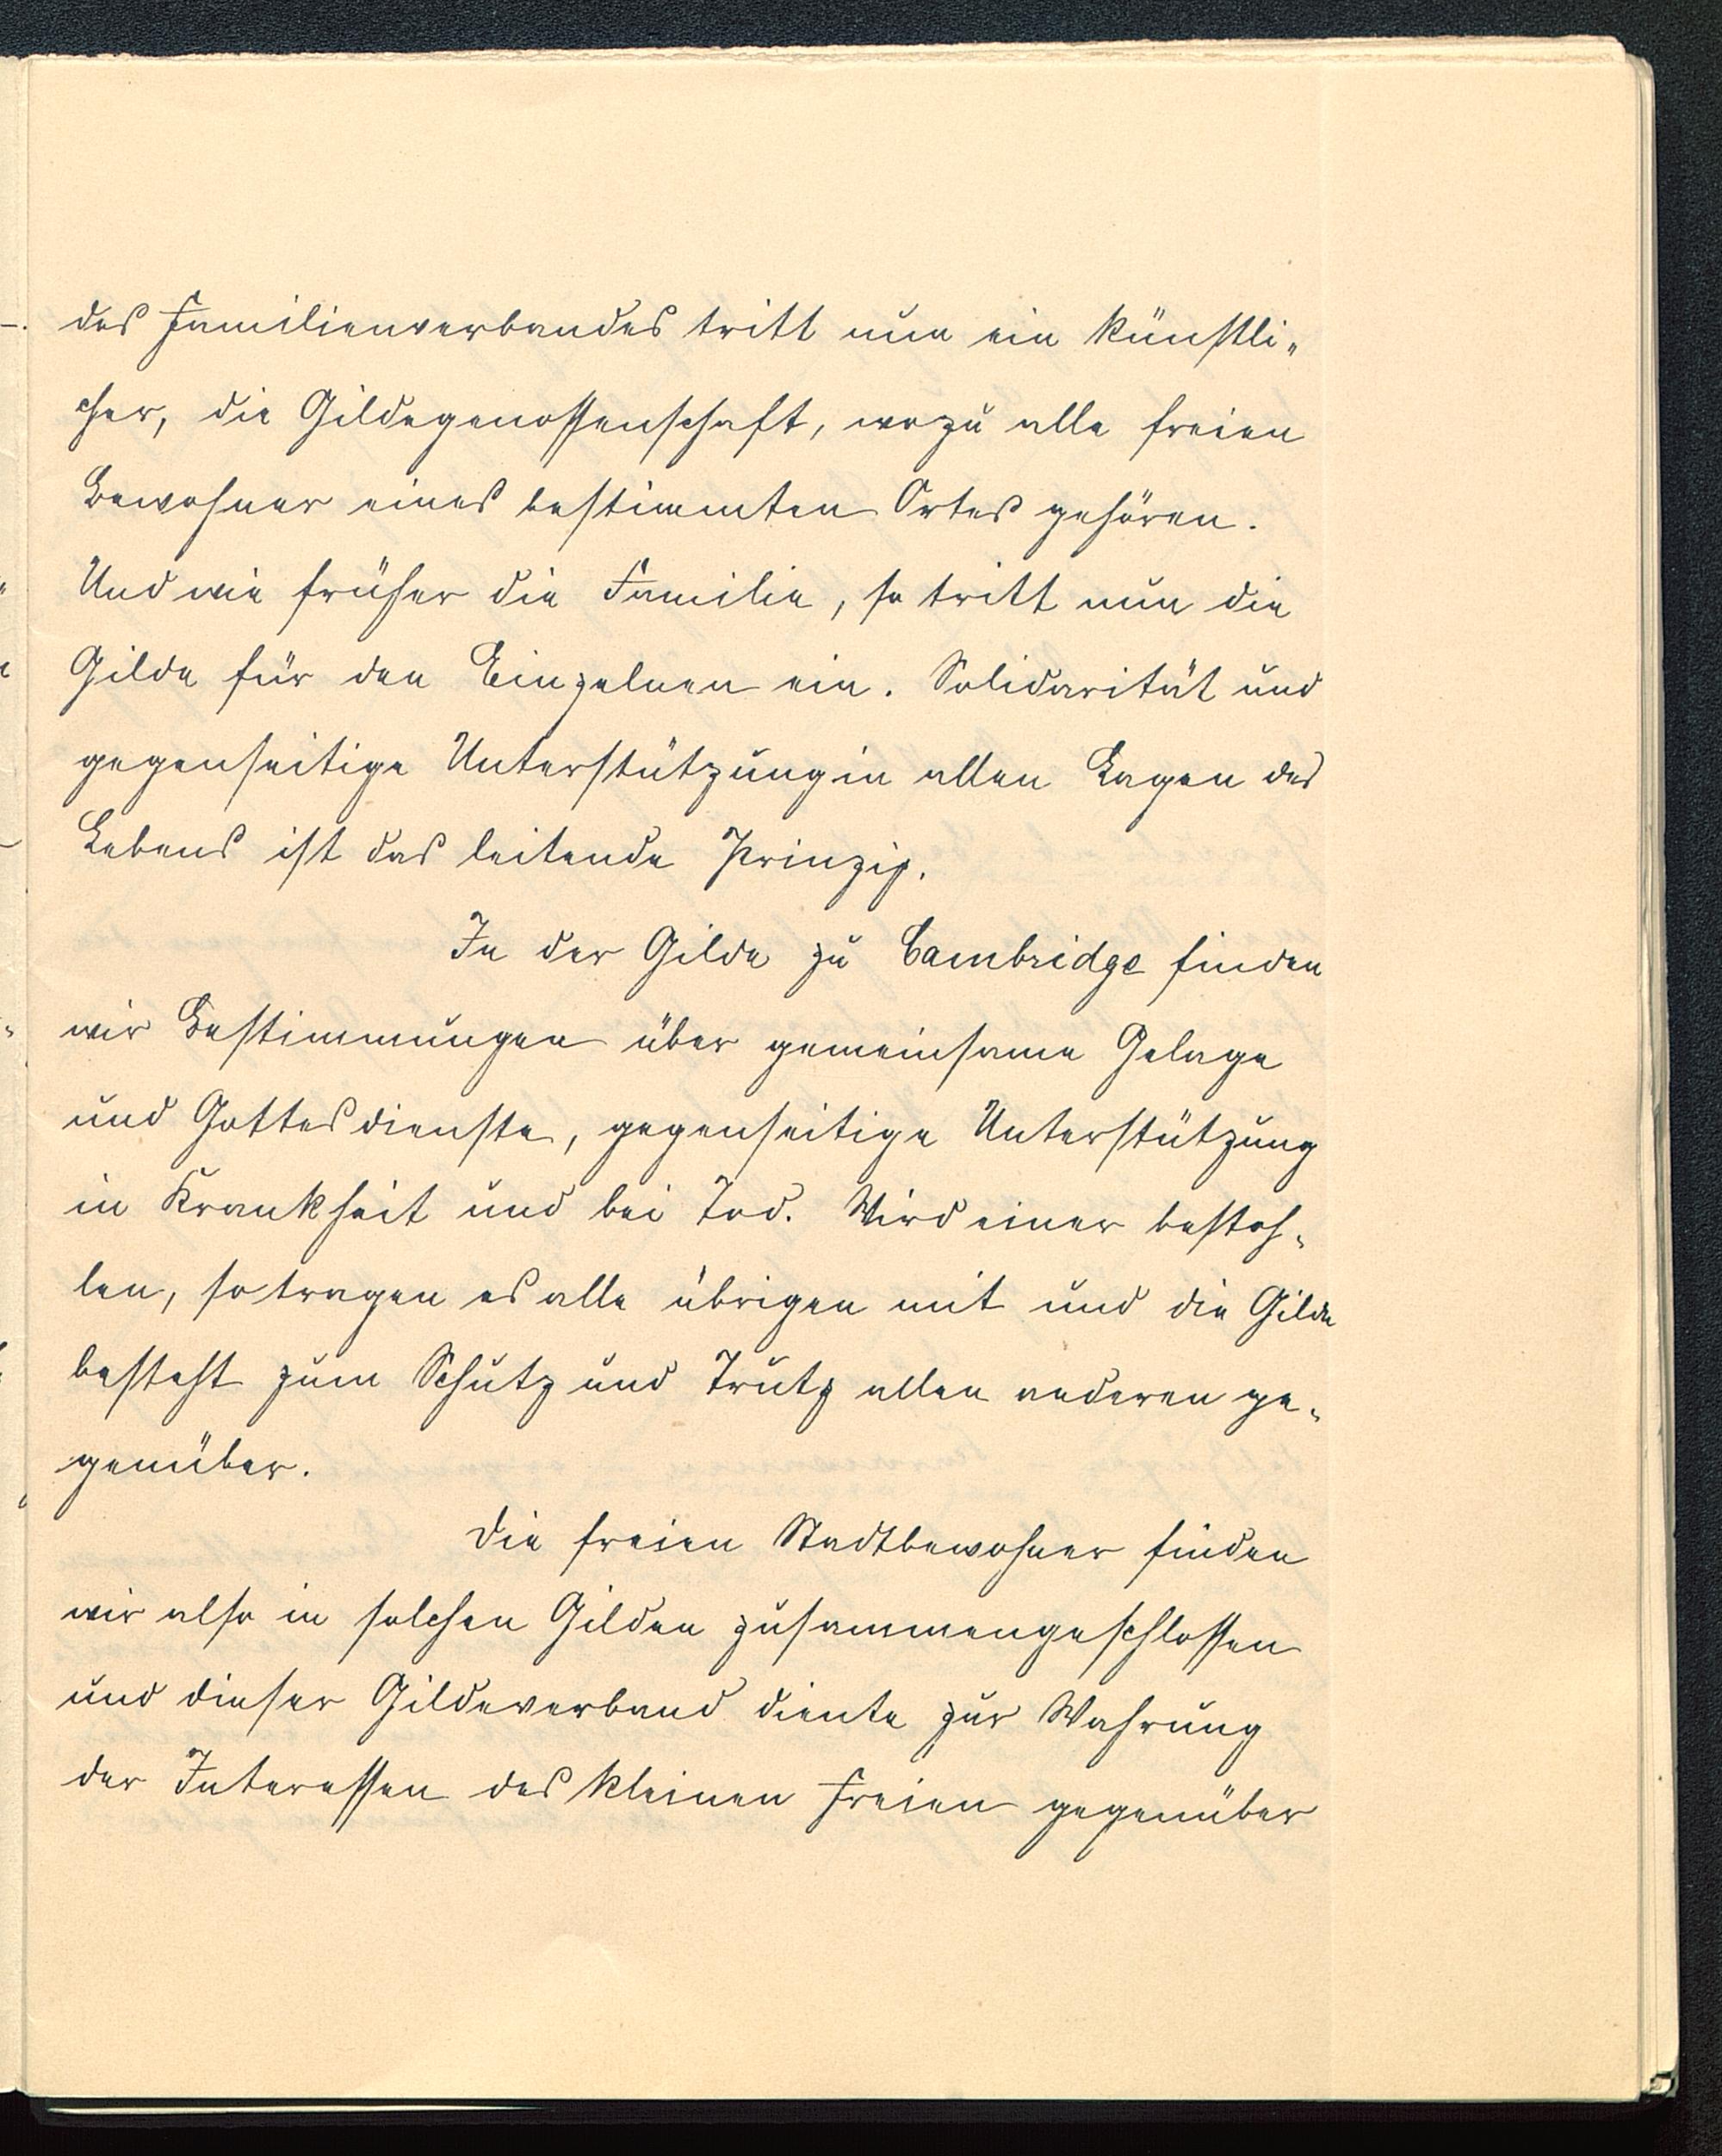 des Familienverbandes tritt nun ein künstli„
cher, die Gildegenossenschaft, wozu alle freien
Bewohner eines bestimmten Ortes gehören.
Und wie früher die Familie, so tritt nun die
Gilde für den Einzelnen ein. Solidarität und
gegenseitige Unterstützung in allen Lagen des
Lebens ist das leitende Prinzip.
In der Gilde zu Cambridge finden
wir Bestimmungen über gemeinsame Gelage
und Gottesdienste, gegenseitige Unterstützung
in Krankheit und bei Tod. Wird einer bestoh„
len, so tragen es alle übrigen mit und die Gilde
besteht zum Schutz und Trutz allen anderen ge„
genüber.
Die freien Stadtbewohner finden
wir also in solchen Gilden zusammengeschlossen
und dieser Gildeverband diente zur Wahrung
der Interessen des kleinen Freien gegenüber